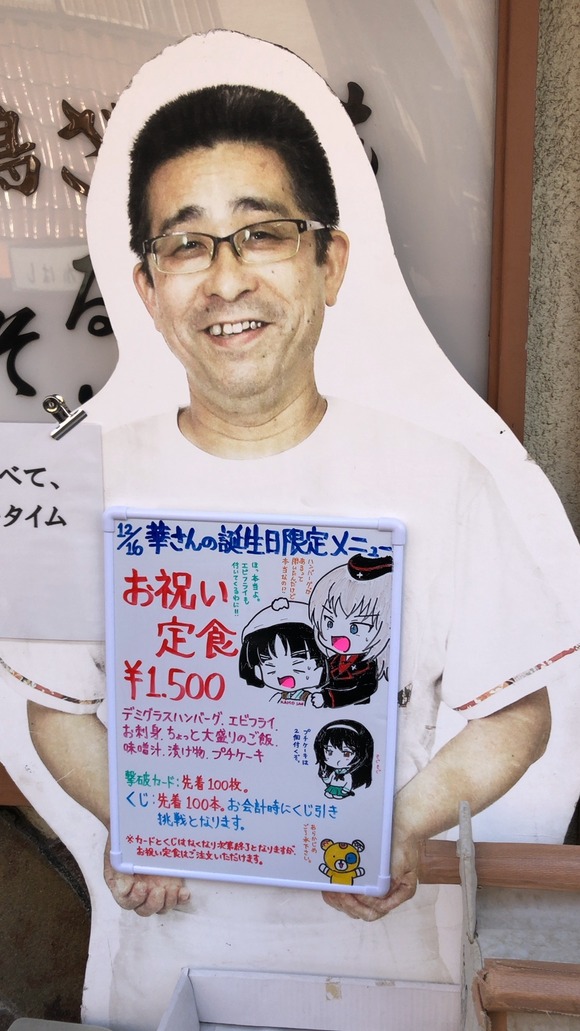 べて、
タイム
12/16 華さんの誕生日限定メニュー
お祝い
定食
¥1.500
ほ、本当よ。
エビフライも
付いてくるわに!!
デミグラスハンバーグ、エビフライ、
お刺身、ちょっと大盛りのご飯、
味噌汁、漬け物、プチケーキ
プチケーキは
2個付くぞ。
撃破カード:先着100枚。
くじ:先着100本。お会計時にくじ引き
挑戦となります。
※カードとくじはなくなり次第終了となりますが、
お祝い定食はご注文いただけます。
あらかじめ
ご了承下さい。